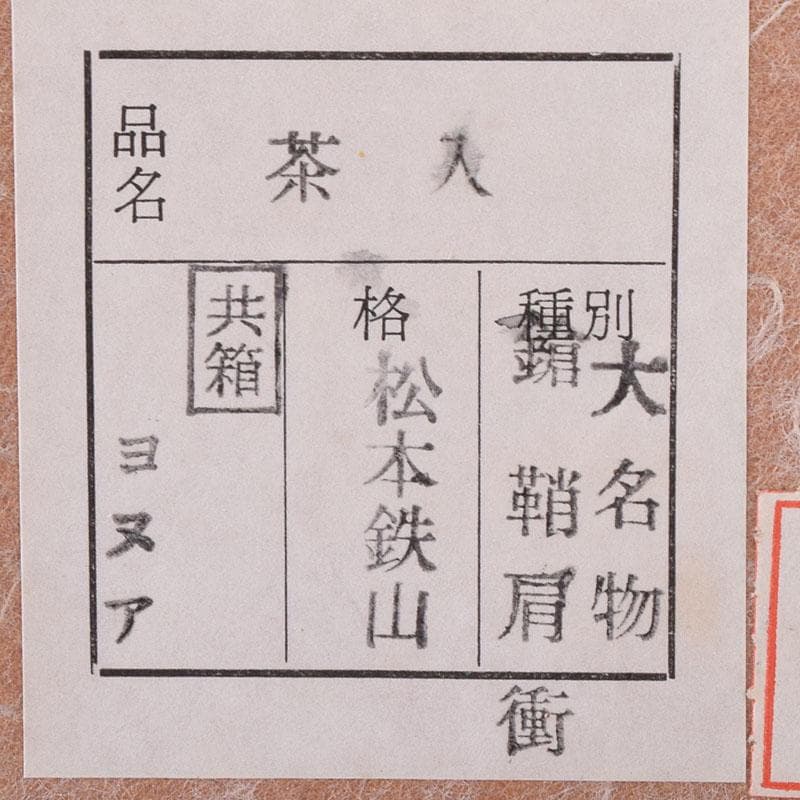 品名
茶入
種別
大名物
鞘肩衝
格
松本鉄山
共箱
ヨヌア